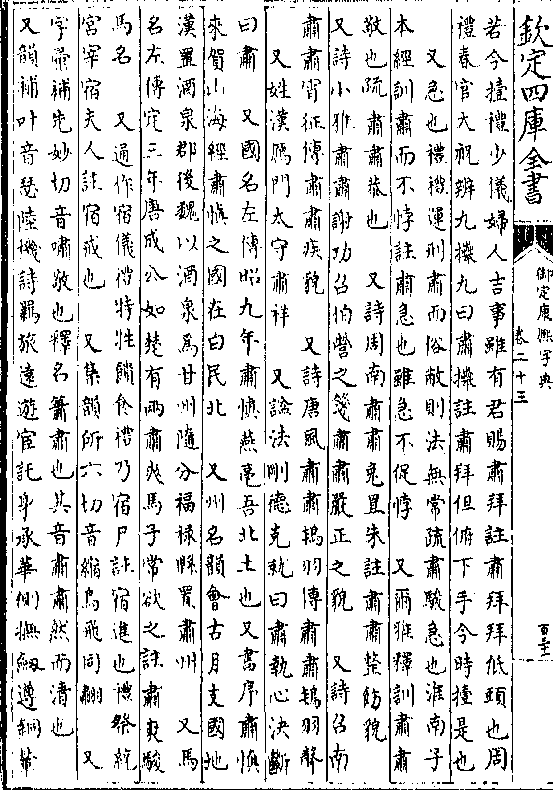 欽定四庫全書
御定康熙字典
卷二十三
若今撎禮少儀婦人吉事雖有君賜肅拜註肅拜拜低頭也周
禮春官大祝辨九𢷎九曰肅𢷎註肅拜但俯下手今時撎是也
又急也禮禮運刑肅而俗敝則法無常疏肅駿急也淮南子
本經訓肅而不悖註肅急也雖急不促悖　又爾雅釋訓肅肅
敬也疏肅肅恭也　又詩周南肅肅兎罝朱註肅肅整飭貌
又詩小雅肅肅謝功召伯營之箋肅肅嚴正之貌　又詩召南
肅肅宵征傳肅肅疾貌　又詩唐風肅肅鴇羽傳肅肅鴇羽聲
又姓漢鴈門太守肅祥　又諡法剛德克就曰肅執心決斷
曰肅　又國名左傳昭九年肅慎燕亳吾北土也又書序肅慎
來賀山海經肅慎之國在白民北　又州名韻會古月支國地
漢置酒泉郡後魏以酒泉爲甘州隨分福祿縣置肅州　又馬
名左傳定三年唐成公如楚有兩肅爽馬子常欲之註肅爽駿
馬名　又通作宿儀禮特牲饋食禮乃宿尸註宿進也禮祭統
宮宰宿夫人註宿戒也　又集韻所六切音縮鳥飛同翿　又
字彙補先妙切音嘯敬也釋名簫肅也其音肅肅然而清也
又韻補叶音瑟陸機詩羈旅遠遊宦託身承華側撫劍遵銅輦